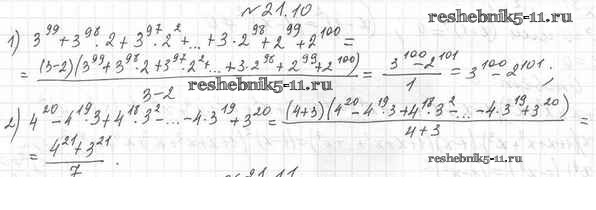 №21.10
reshebnik5-11.ru
1) 3^99 + 3^98 · 2 + 3^97 · 2^2 + ... + 3 · 2^98 + 2^99 + 2^100 =
= (3-2)(3^99 + 3^98 · 2 + 3^97 · 2^2 + ... + 3 · 2^98 + 2^99 + 2^100) / 3-2 = 3^100 - 2^101 / 1 = 3^100 - 2^101.
reshebnik5-11.ru
2) 4^20 - 4^19 · 3 + 4^18 · 3^2 - ... - 4 · 3^19 + 3^20 = (4+3)(4^20 - 4^19 · 3 + 4^18 · 3^2 - ... - 4 · 3^19 + 3^20) / 4+3 =
= 4^21 + 3^21 / 7.
reshebnik5-11.ru